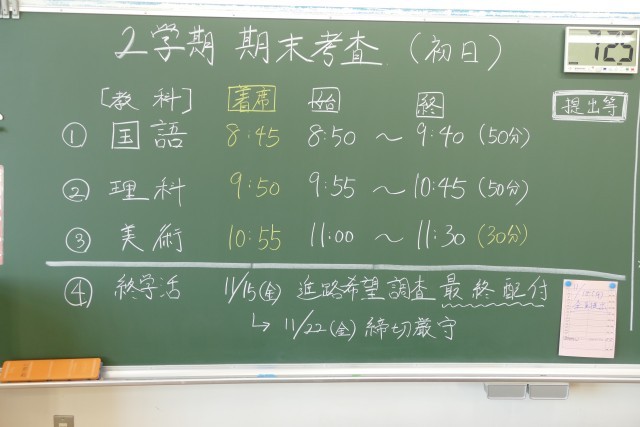 2学期 期末考査 (初日)
725
[教科] 着席 始 終 提出等
① 国語 8:45 8:50 〜 9:40 (50分)
② 理科 9:50 9:55 〜 10:45 (50分)
③ 美術 10:55 11:00 〜 11:30 (30分)
④ 終学活 11/15(金) 進路希望調査 最終配付
↳ 11/22(金) 締切厳守